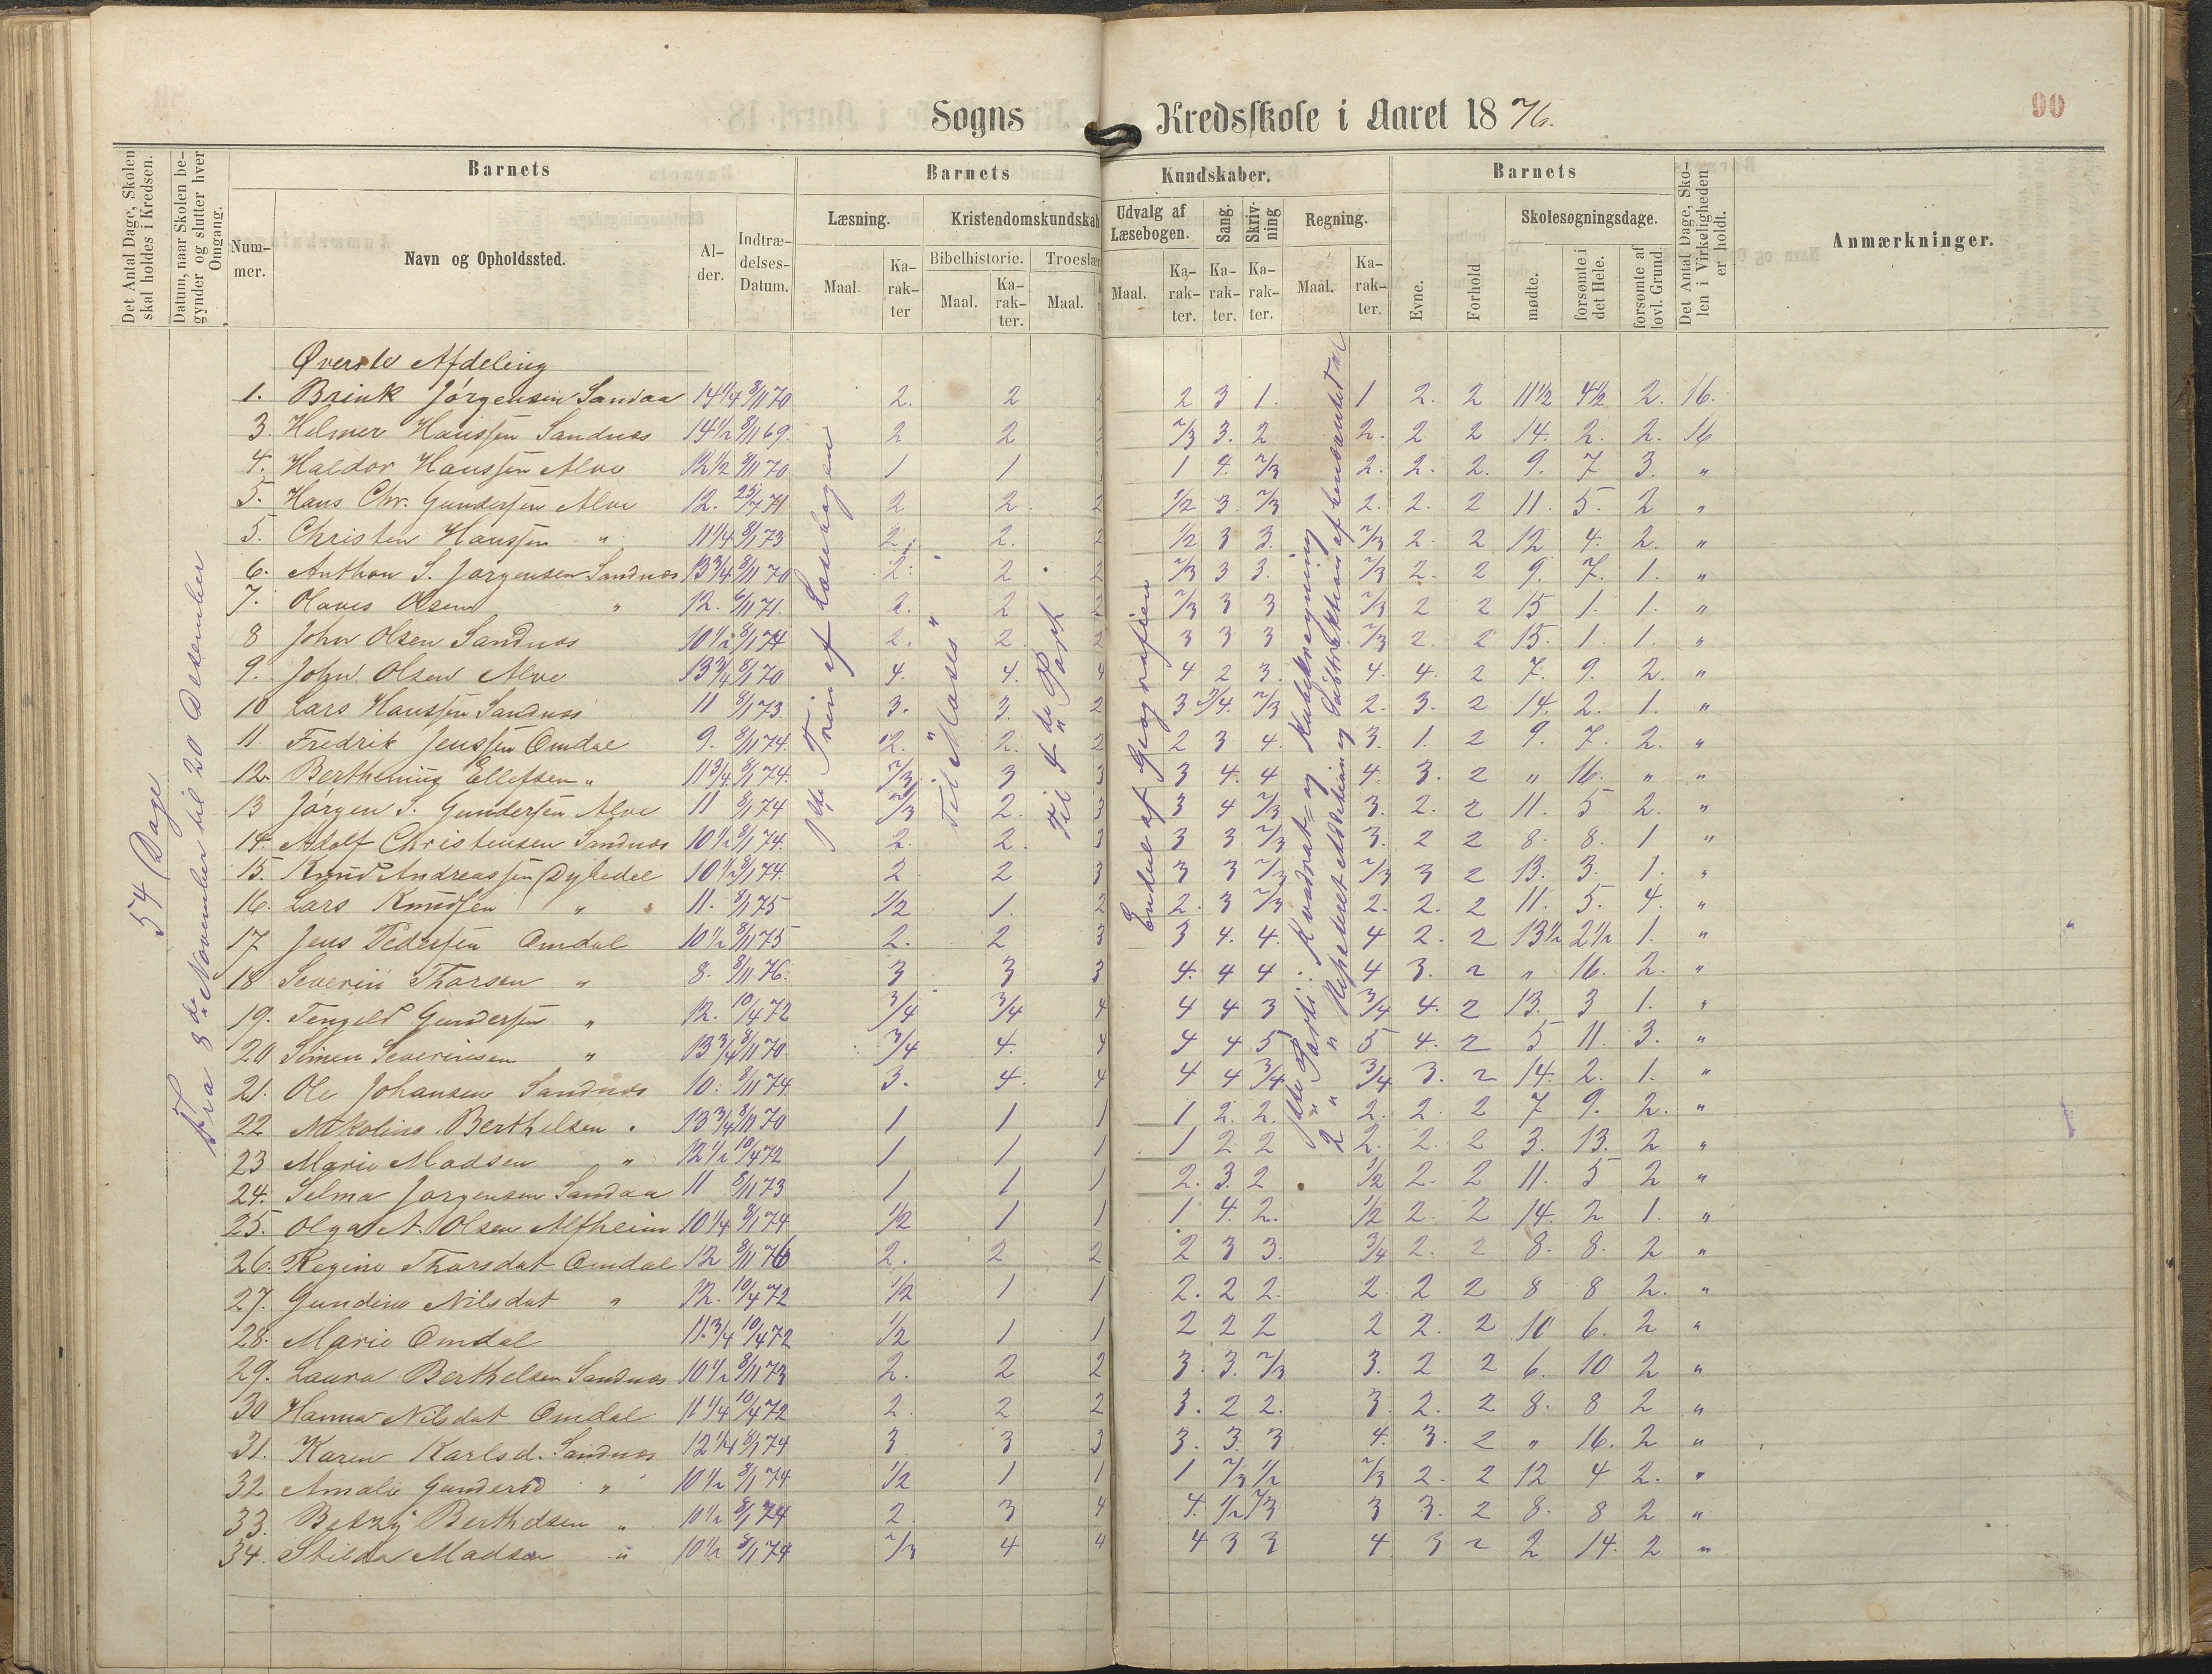 Sogns Kredsskole i Aaret 1876.
90
Det Antal Dage, Skolen skal holdes i Kredsen.
Datum, naar Skolen begynder og slutter hver Omgang.
Barnets
Barnets Kundskaber.
Barnets
Det Antal Dage, Skolen i Virkeligheden er holdt.
Anmærkninger.
Nummer.
Navn og Opholdssted.
Alder.
Indtrædelses-Datum.
Læsning.
Kristendomskundskab
Udvalg af Læsebogen.
Sang.
Skrivning
Regning.
Evne.
Forhold
Skolesøgningsdage.
Bibelhistorie.
Troeslære
Maal.
Karakter
Maal.
Karakter.
Maal.
Maal.
Karakter.
Karakter.
Karakter.
Maal.
Karakter.
mødte.
forsømte i det Hele.
forsømte af lovl. Grund.
54 Dage
Fra 8de November til 20 Desember
af Læsebogen
Til Moses
Til 4de Part
Endel af Geografien
Parti: Kvadrat= og Kubikregning
2 " Repeteret Addition og Subtraktion af benævnte Tal
Øverste Afdeling
1. Brink Jörgensen Sandaa 14 1/4 8/11 70 2. 2 2 2 3 1. 1 2. 2 11 1/2 4 1/2 2. 16.
3. Helmer Hanssen Sandnæs 14 1/2 8/11 69. 2 2 2 2/3 3. 2 2. 2 2 14. 2. 2. 16
4. Haldor Hanssen Alve 12 1/2 8/11 70 1 1 1 4. 2/3 2. 2. 2. 9. 7 3. "
5. Hans Chr. Gundersen Alve 12. 25/7 71 2 2. 2 1/2 3. 2/3 2. 2. 2 11. 5. 2 "
5. Christen Hanssen " 11 1/4 8/1 73 2. 2. 2 1/2 3 3. 2/3 2. 2 12 4. 2. "
6. Anthon S. Jørgensen Sandnæs 13 3/4 8/11 70 2. 2 2 2/3 3 3. 2/3 2. 2 9. 7. 1. "
7. Olaves Olsen " 12. 8/11 71. 2. 2 2 2/3 3 3 2/3 2 2 15 1. 1. "
8 John Olsen Sandnæs 10 1/2 8/1 74 2. 2. 2 3 3 3 2/3 2. 2 15. 1. 1. "
9. John Olsen Alve 13 3/4 8/1 70 4. 4. 4 4 2 3. 4. 4. 2 7. 9. 2. "
10 Lars Hanssen Sandnæs 11 8/1 73. 3. 3. 2 3 3/4. 2/3 2. 3. 2 14. 2. 1. "
11. Fredrik Jenssen Omdal 9. 8/11 74. 2. 2. 2 2 3 4. 3. 1. 2 9. 7. 2. "
12. Berthenius Ellefsen " 11 3/4 8/1 74. 2/3. 3 3 3 4. 4 4. 3. 2 " 16. " "
13 Jörgen S. Gundersen Alve 11 8/1 74 2/3 2. 3 3 4 2/3 3. 2. 2 11. 5 2. "
14. Adolf Christensen Sandnæs 10 1/2 8/1 74. 2. 2. 3 3 3 2/3 3. 2 2 8. 8. 1 "
15. Knud Andreassen Dybedal 10 1/2 8/1 74. 2 2 3 3 3 2/3 2/3 3 2 13. 3. 1. "
16. Lars Knudsen " 11. 8/1 75 1/2 1. 2 2. 3 2/3 2. 2. 2 11. 5. 4. "
17 Jens Pedersen Omdal 10 1/2 8/11 75 2. 2 3 3 4. 4. 4 2. 2 13 1/2 2 1/2 1. "
18 Severin Thorsen " 8. 8/11 76. 3 3 3 4. 4 4 4 3. 2 " 16. 2. "
19. Tengeld Gundersen " 12. 10/4 72 3/4 3/4 4 4 4 3 3/4 4. 2 13. 3 1. "
20 Simen Severinsen " 13 3/4 8/11 70 3/4 4. 4 4 4 5 5 4. 2 5 11. 3. "
21. Ole Johansen Sandnæs 10. 8/11 74. 3. 4. 4 4 4 3/4 3/4 3. 2 14. 2. 1. "
22 Nikoline Berthelsen " 13 3/4 8/11 70 1 1 1 1 2. 2. 2. 2. 2 7 9. 2. "
23 Marie Madsen " 12 1/2 10/4 72 1 1 1 1 2 2 2. 2. 2 3. 13. 2 "
24. Selma Jørgensen Sandaa 11 8/11 73 1 1 1 2. 3. 2 1/2 2. 2 11. 5 2 "
25. Olga A. Olsen Alfheim 10 1/4 8/1 74 1/2 1 1 1 4. 2. 1/2 2. 2 14. 2 1. "
26. Regine Thorsdat Omdal 12 8/11 76 2. 2 2 2 3 3. 3/4 2. 2 8. 8. 2 "
27. Gundine Nilsdat " 12. 10/4 72 1/2 1 1 2. 2 2. 2. 2 2 8 8 2. "
28. Marie Omdal 11. 3/4 10/4 72 1/2 1 1 2 2 2 2 2. 2 10 6. 2 "
29. Laura Berthelsen Sandnæs 10 1/2 8/11 73 2. 2 2 3. 3. 2/3 3. 2 2 6. 10 2 "
30 Hanna Nilsdat Omdal 11 1/4 10/4 72 2. 2 2 3. 2 2. 3. 2. 2 8. 8 2 "
31. Karen Karlsd. Sandnæs 12 1/4 8/1 74 3 3 3 3. 3. 3 4. 3. 2 " 16. 2 "
32 Amalie Gundersd " 10 1/2 8/1 74 1/2 1 1 1 2/3 1/2 2/3 2. 2 12 4 2. "
33. Betzy Berthelsen " 10 1/2 8/1 74 2. 3 4 4. 1/2 2/3 3 3. 2 8. 8 2 "
34. Stilda Madsen " 10 1/2 8/1 74 2/3 4 4 4 3 3 4 3 2 2 14. 2 "